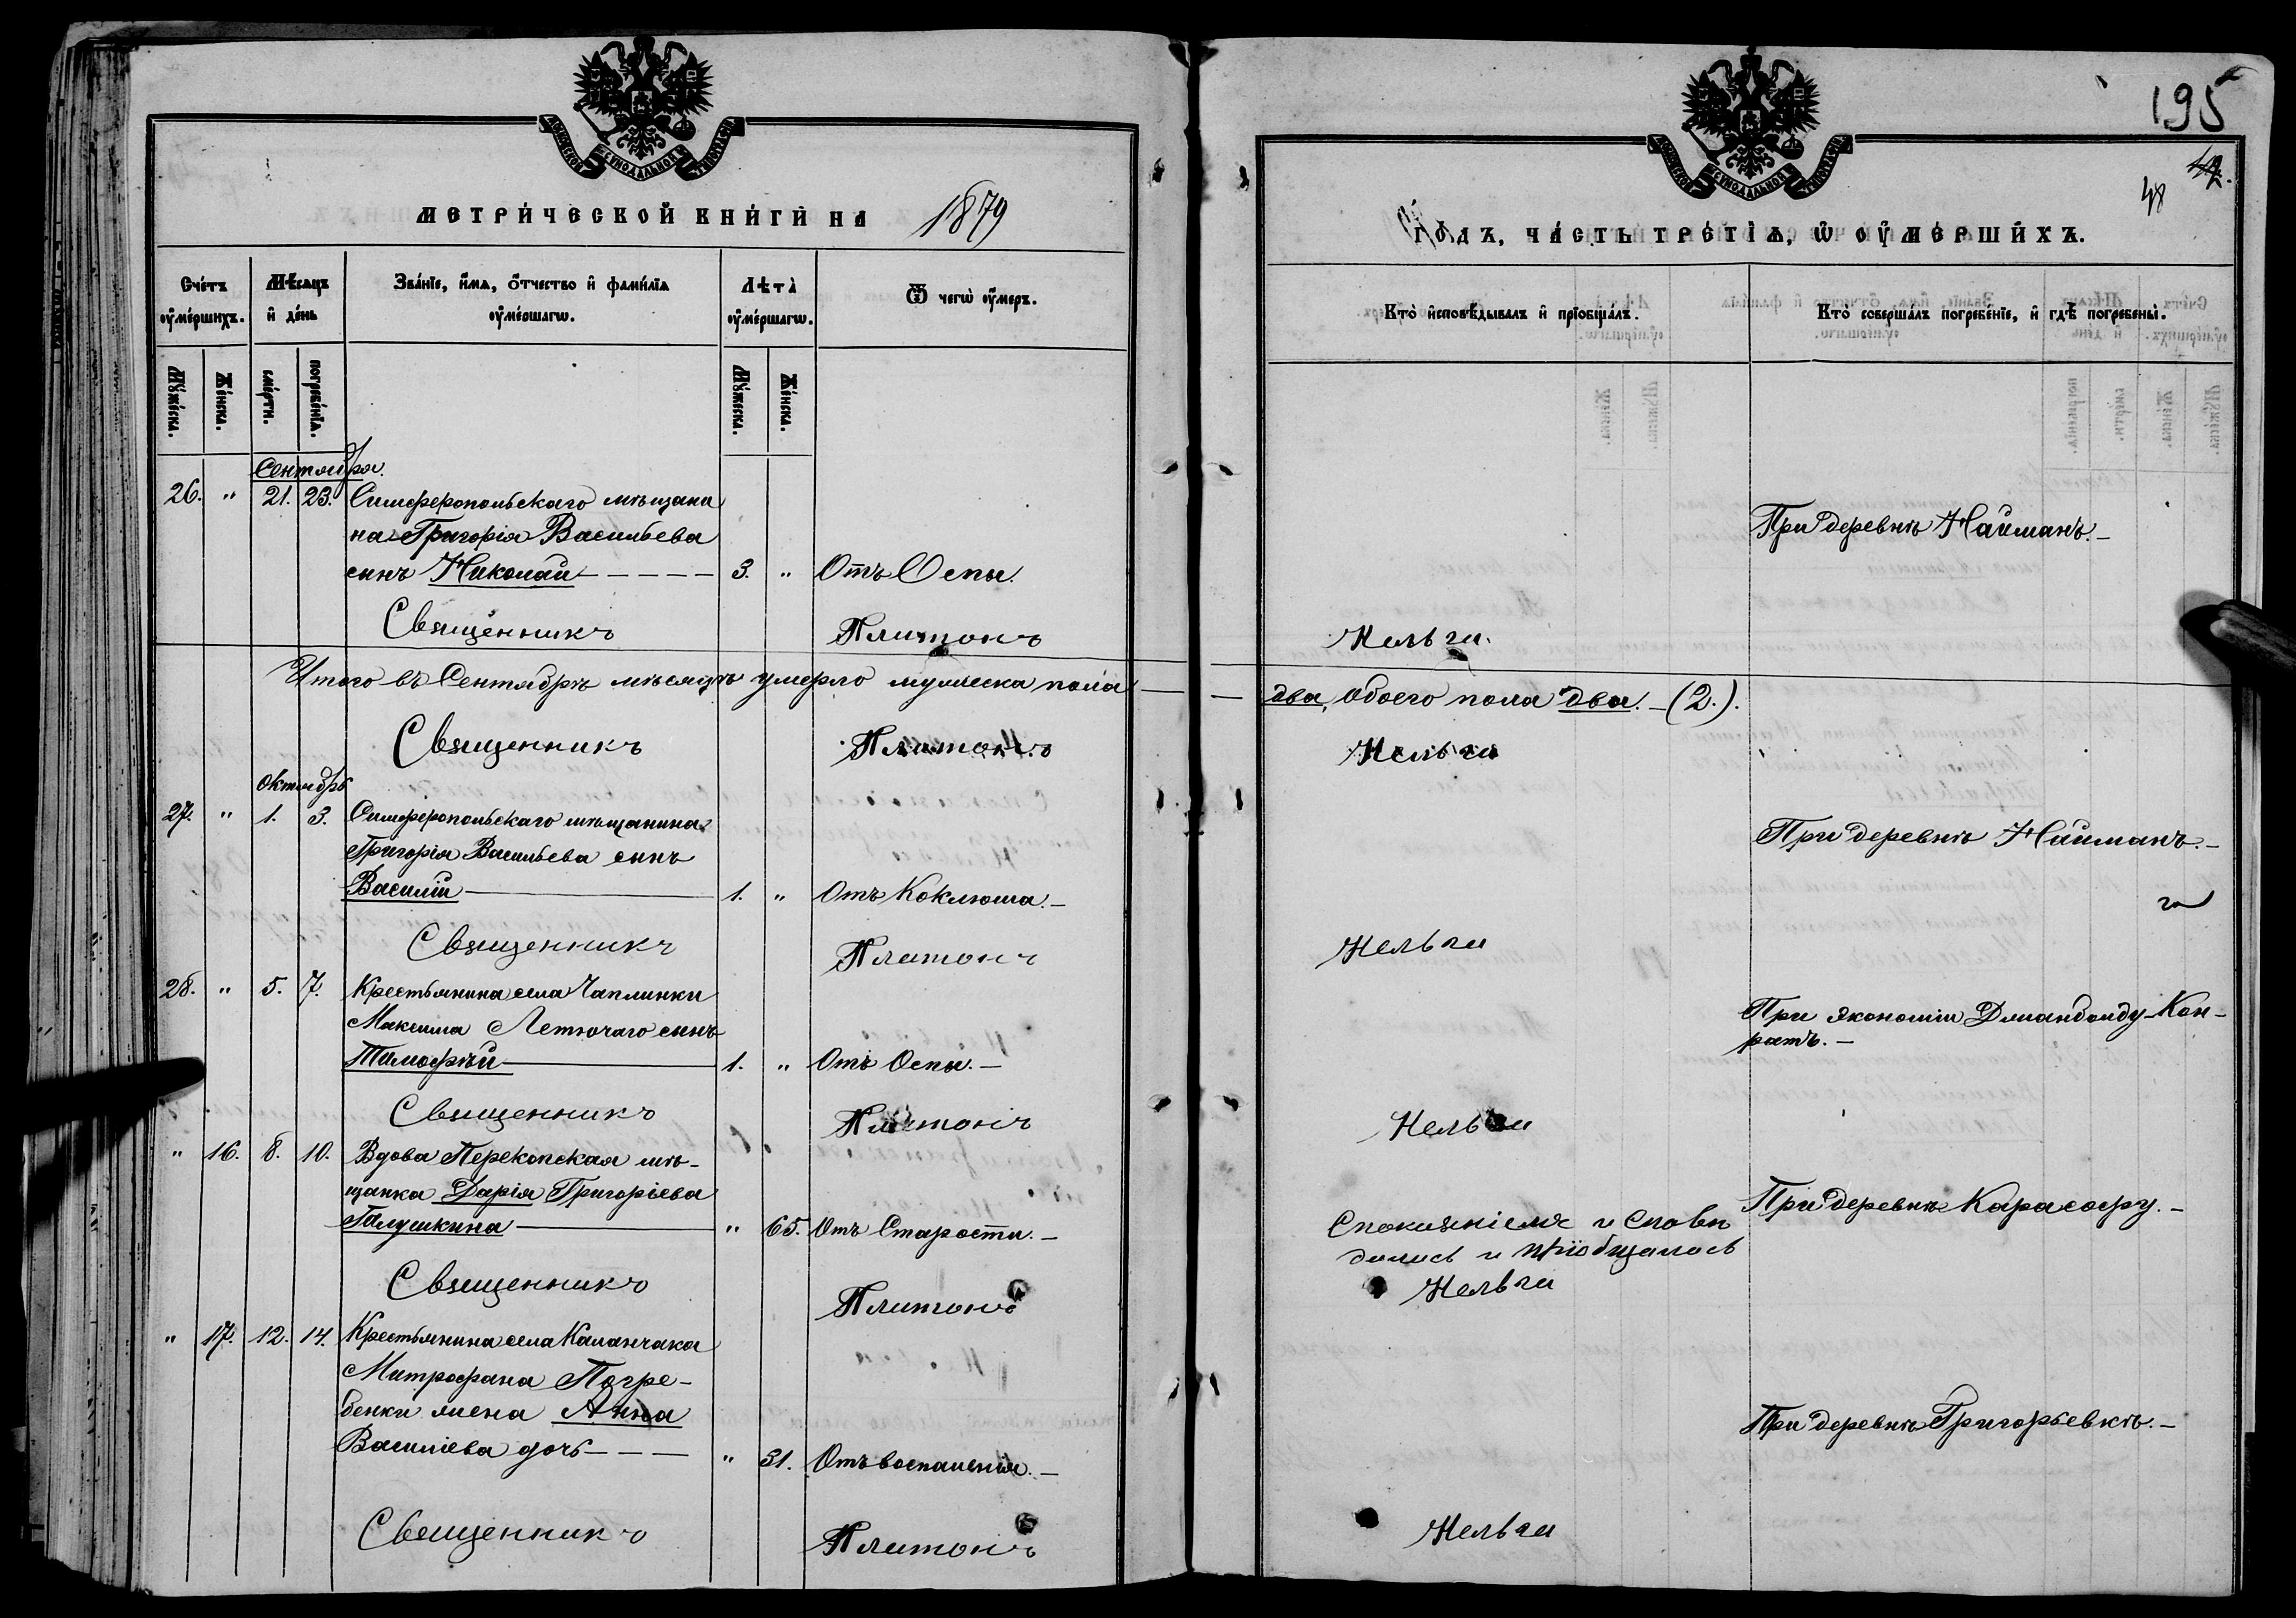 МОСКОВСКОЙ СѴНОДАЛЬНОЙ ТИПОГРАФІИ
МЕТРИЧЕСКОЙ КНИГИ НА 1879
Счетъ умершихъ.
Мѣсяцъ и день
Званіе, имя, отчество и фамилія умершагѡ.
Лѣта умершагѡ.
Ѿ чегѡ умеръ.
Мужеска.
Женска.
смерти.
погребенія.
Мужеска.
Женска.
Сентября.
26. " 21. 23. Симферопольскаго мѣщани
на Григорія Васильева
сынъ Николай 3. " Отъ Оспы.
Священникъ Платонъ
Итого въ Сентябрѣ мѣсяцѣ умерло мужеска пола
Священникъ Платонъ
Октябрь
27. " 1. 3. Симферопольскаго мѣщанина
Григорія Васильева сынъ
Василій 1. " Отъ Коклюша.
Священникъ Платонъ
28. " 5. 7. Крестьянина села Чаплинки
Максима Летючаго сынъ
Тимофѣй 1. " Отъ Оспы.
Священникъ Платонъ
" 16. 8. 10. Вдова Перекопская мѣ-
щанка Дарія Григоріева
Галушкина " 65. Отъ Старости.
Священникъ Платонъ
" 17. 12. 14. Крестьянина села Каланчака
Митрофана Погре-
бенки жена Анна
Василіева дочь " 31. Отъ воспаленія.
Священникъ Платонъ
МОСКОВСКОЙ СѴНОДАЛЬНОЙ ТИПОГРАФІИ
195
48
ГОДЪ, ЧАСТЬ ТРЕТІЯ, Ѡ УМЕРШИХЪ.
Кто исповѣдывалъ и пріобщалъ.
Кто совершалъ погребеніе, и гдѣ погребены.
При деревнѣ Найманъ.
два, обоего пола два. (2).
При деревнѣ Найманъ.
При экономіи Джанболду-Кон-
ратъ.
При деревнѣ Карасофу.
Спокаяніемъ исповѣ
далась и пріобщалась
При деревнѣ Григорьевкѣ.